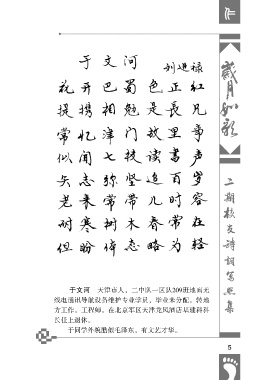 于文河
刘迎禄
花开巴蜀色正红
提携相勉是长兄
常忆津门故里事
似闻七技读书声
矢志弥坚追百岁
老来常带儿时容
耐寒树木春常在
但盼体态略为轻
于文河 天津市人、二中队一区队309班地面无
线电通讯导航设备维护专业学员，毕业未分配。转地
方工作。工程师。在北京军区天津龙凤酒店基建科科
长任上退休。
于同学外貌酷似毛泽东，有文艺才华。
岁月如歌
二期校友诗词写照集
5